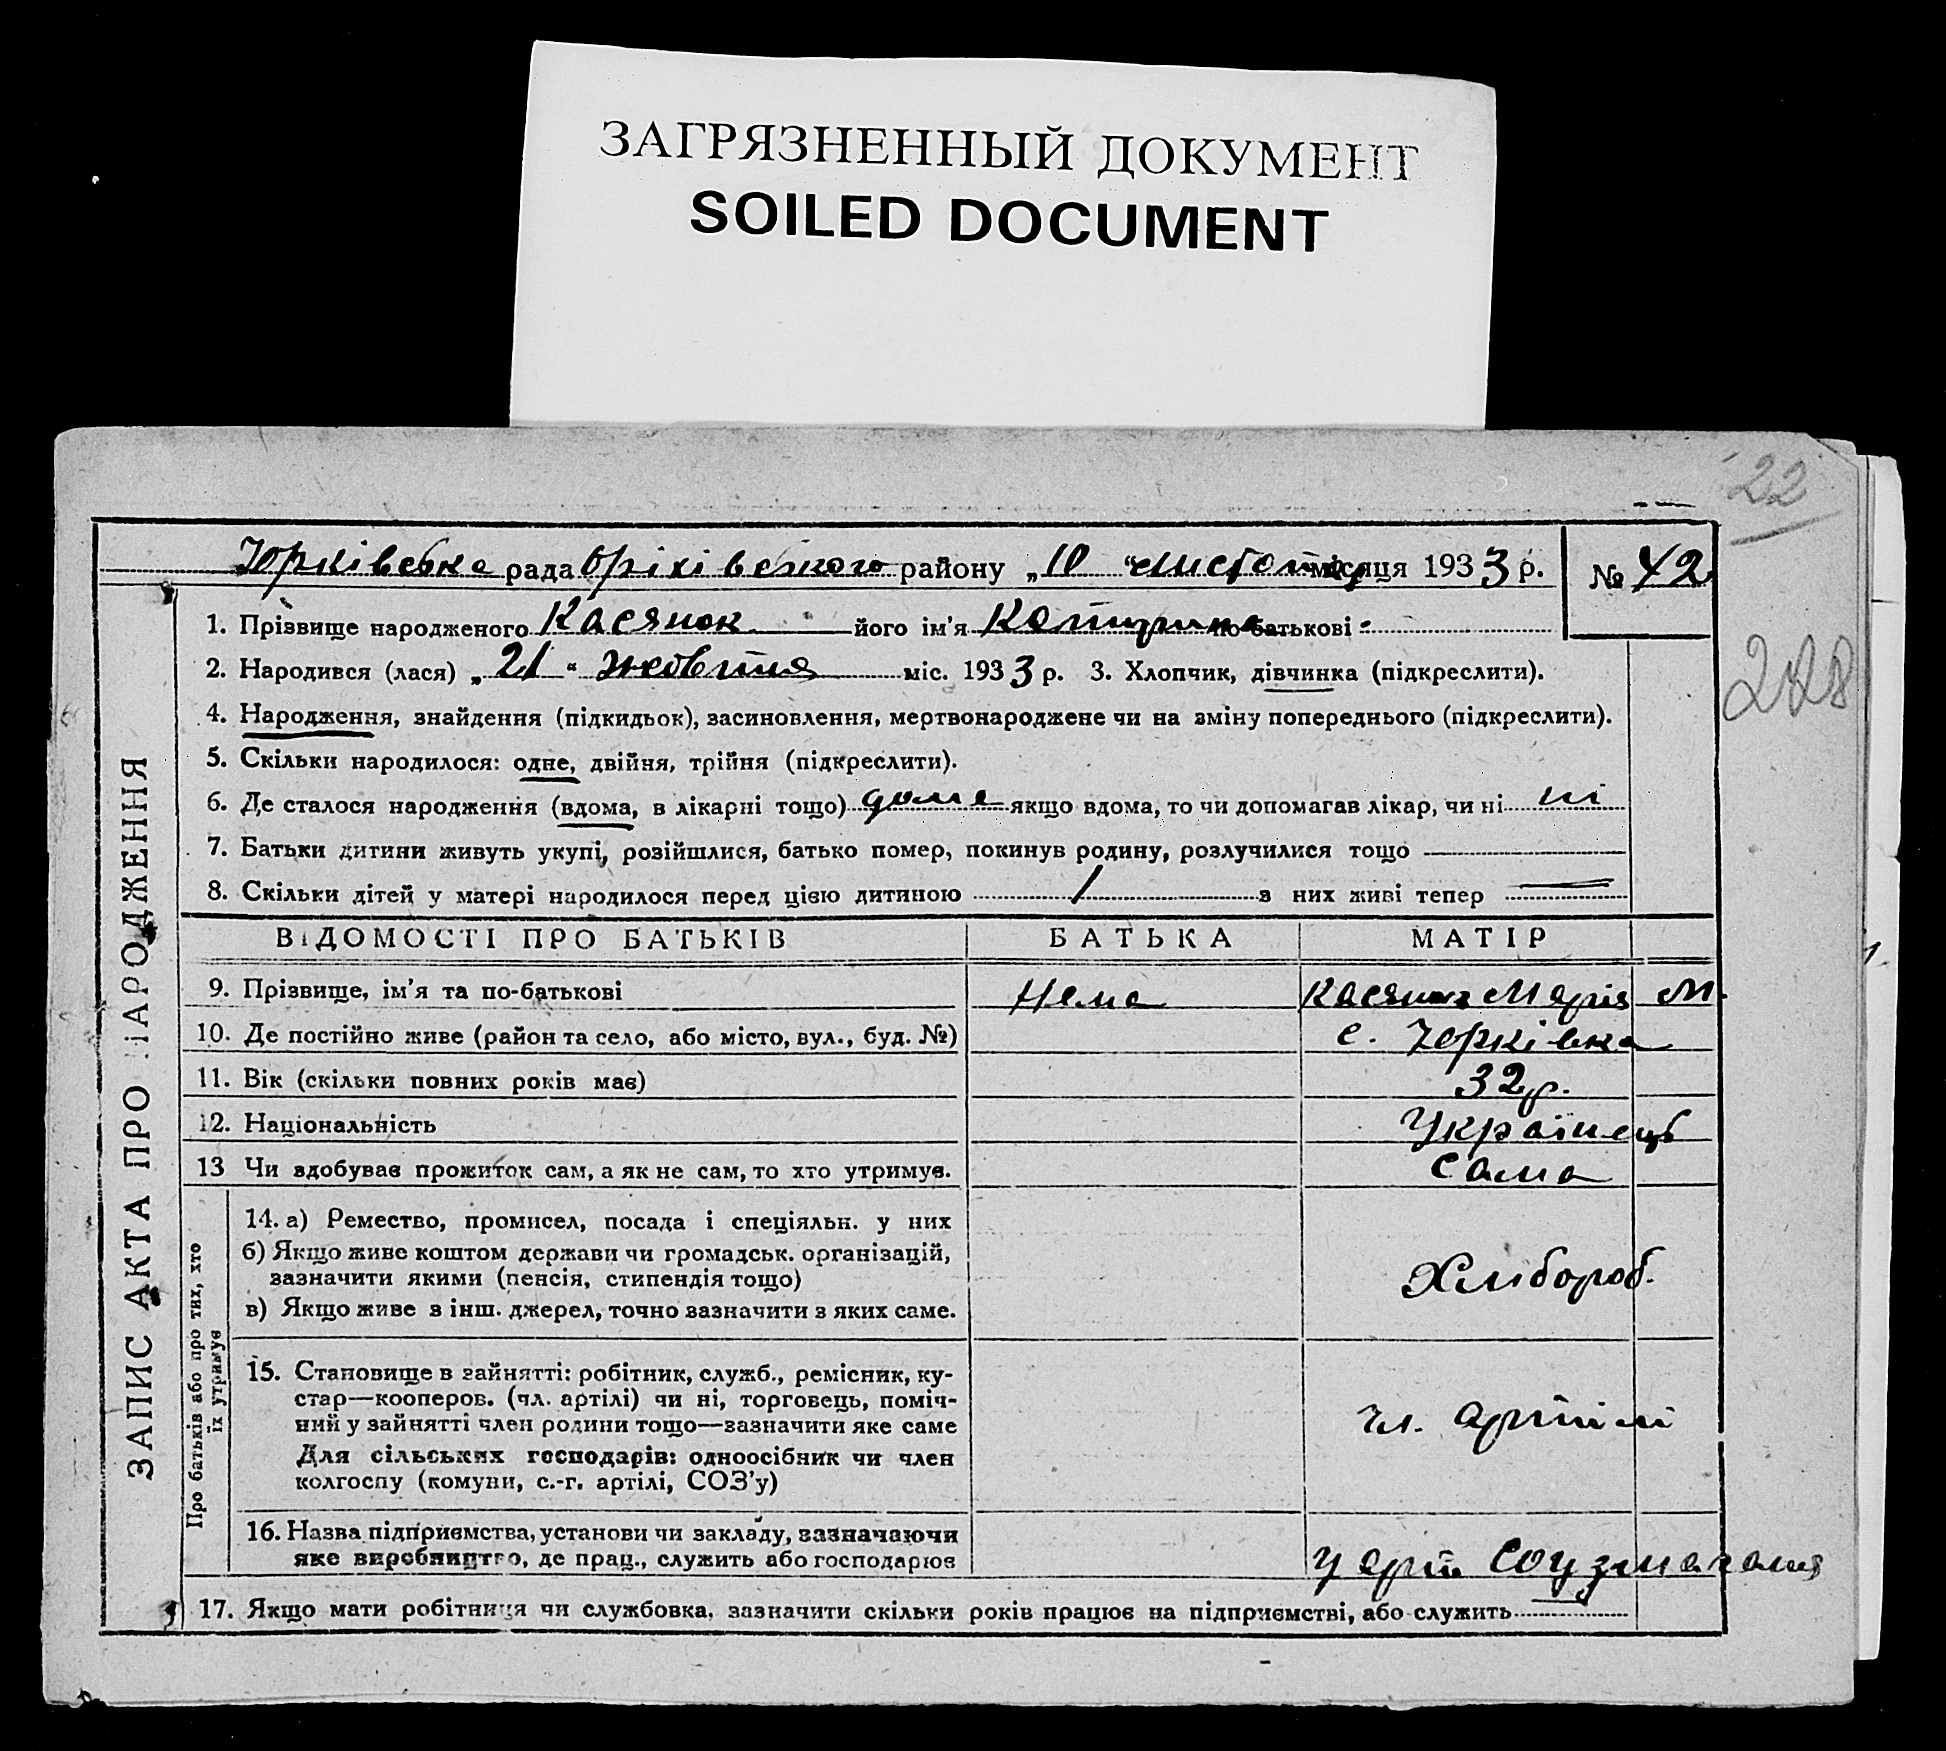 ЗАГРЯЗНЕННЫЙ ДОКУМЕНТ
SOILED DOCUMENT
22
Юрківська рада Оріхівського району „10 “ листопад місяця 1933 р. № 42
288
ЗАПИС АКТА ПРО НАРОДЖЕННЯ
1. Прізвище народженого Касянюк його ім'я Катерина по батькові -
2. Народився (лася) „ 21 “ жовтня міс. 1933 р. 3. Хлопчик, дівчинка (підкреслити).
4. Народження, знайдення (підкидьок), засиновлення, мертвонароджене чи на зміну попереднього (підкреслити).
5. Скільки народилося: одне, двійня, трійня (підкреслити).
6. Де сталося народження (вдома, в лікарні тощо) дома якщо вдома, то чи допомагав лікар, чи ні ні
7. Батьки дитини живуть укупі, розійшлися, батько помер, покинув родину, розлучилися тощо
8. Скільки дітей у матері народилося перед цією дитиною 1 з них живі тепер —
ВІДОМОСТІ ПРО БАТЬКІВ БАТЬКА МАТІР
9. Прізвище, ім'я та по-батькові Нема Касянюк Марія М.
10. Де постійно живе (район та село, або місто, вул., буд. №) с. Юрківка
11. Вік (скільки повних років має) 32 р.
12. Національність Українець
13 Чи здобуває прожиток сам, а як не сам, то хто утримує. Сама
Про батьків або про тих, хто
їх утримує
14. а) Ремество, промисел, посада і спеціяльн. у них
б) Якщо живе коштом держави чи громадськ. організацій,
зазначити якими (пенсія, стипендія тощо) Хлібороб.
в) Якщо живе з інш. джерел, точно зазначити з яких саме.
15. Становище в зайнятті: робітник, служб., ремісник, ку-
стар—кооперов. (чл. артілі) чи ні, торговець, поміч-
ний у зайнятті член родини тощо—зазначити яке саме чл. артілі
Для сільських господарів: одноосібник чи член
колгоспу (комуни, с.-г. артілі, СОЗ'у)
16. Назва підприємства, установи чи закладу, зазначаючи
яке виробництво, де прац., служить або господарює у арті
17. Якщо мати робітниця чи службовка, зазначити скільки років працює на підприємстві, або служить